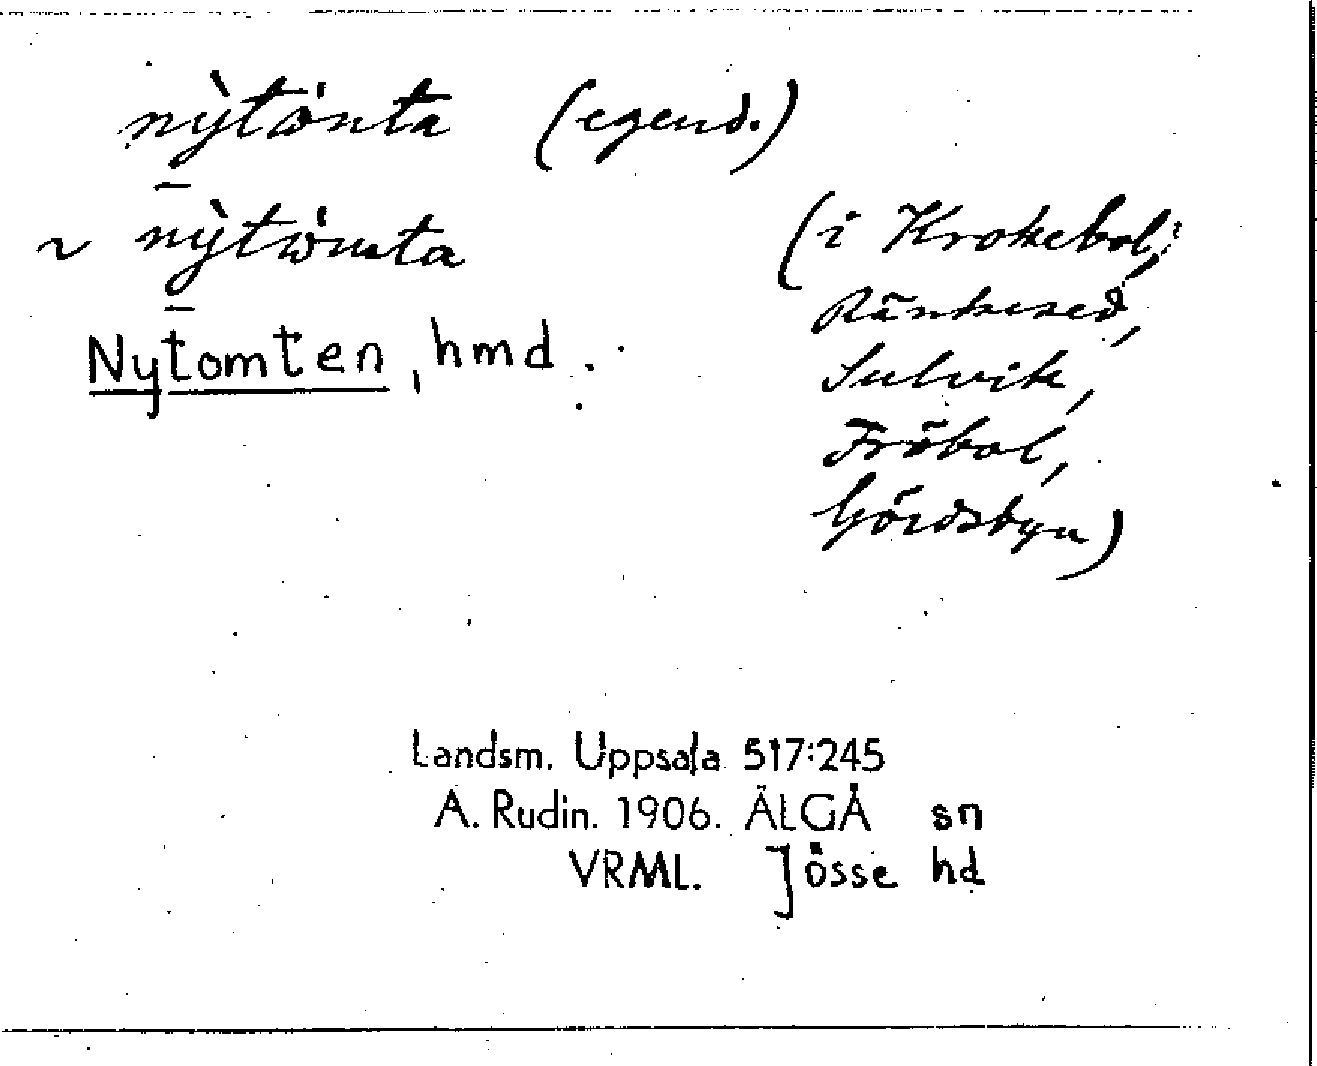 nỳtȯnta (egend.)
~ nỳtȯmta (i Krokebol,
Ränkesed,
Nytomten, hmd.
Sulvik,
Fröbol,
Gördsbyn)
Landsm. Uppsala 517:245
A. Rudin. 1906. ÄLGÅ sn
VRML. Jösse hd